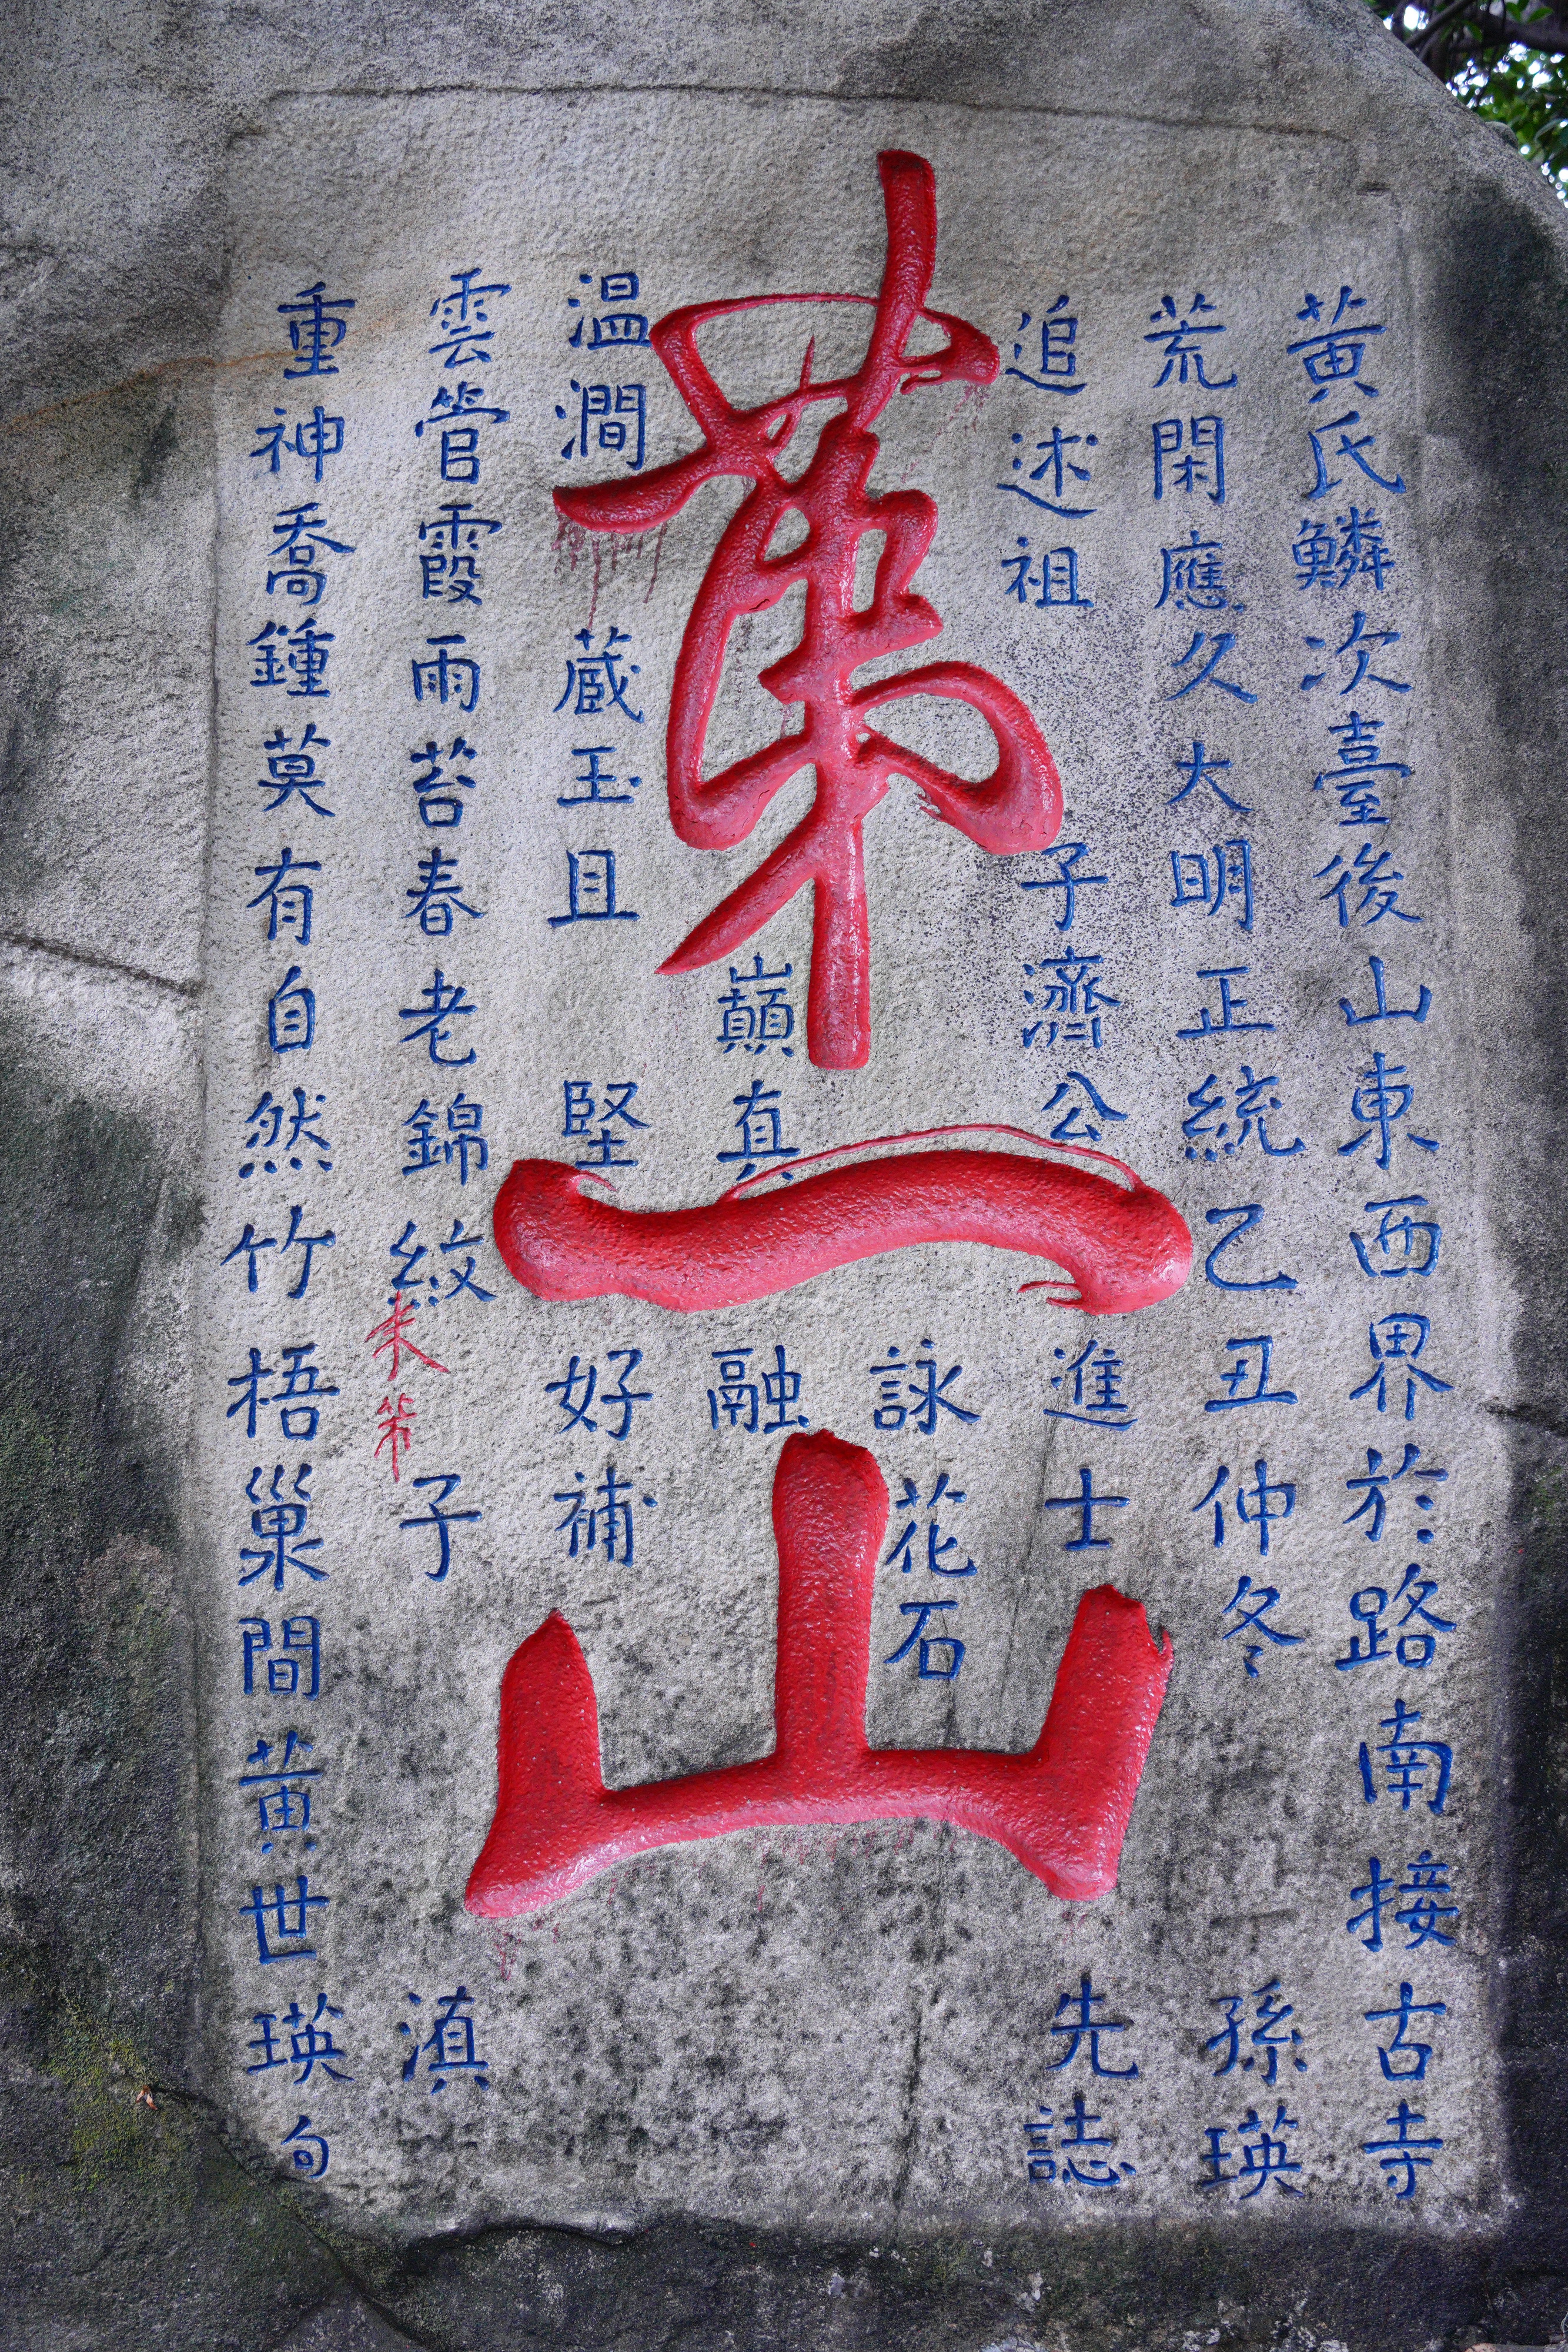 第一山
黄氏鱗次臺後山東西界於路南接古寺
荒閑應久大明正統乙丑仲冬孫瑛
追述祖子濟公進士先誌
詠花石
巔真融
温澗蔵玉且堅好補
雲管霞雨苔春老錦紋子滇
重神喬鍾莫有自然竹梧巢間黄世瑛句